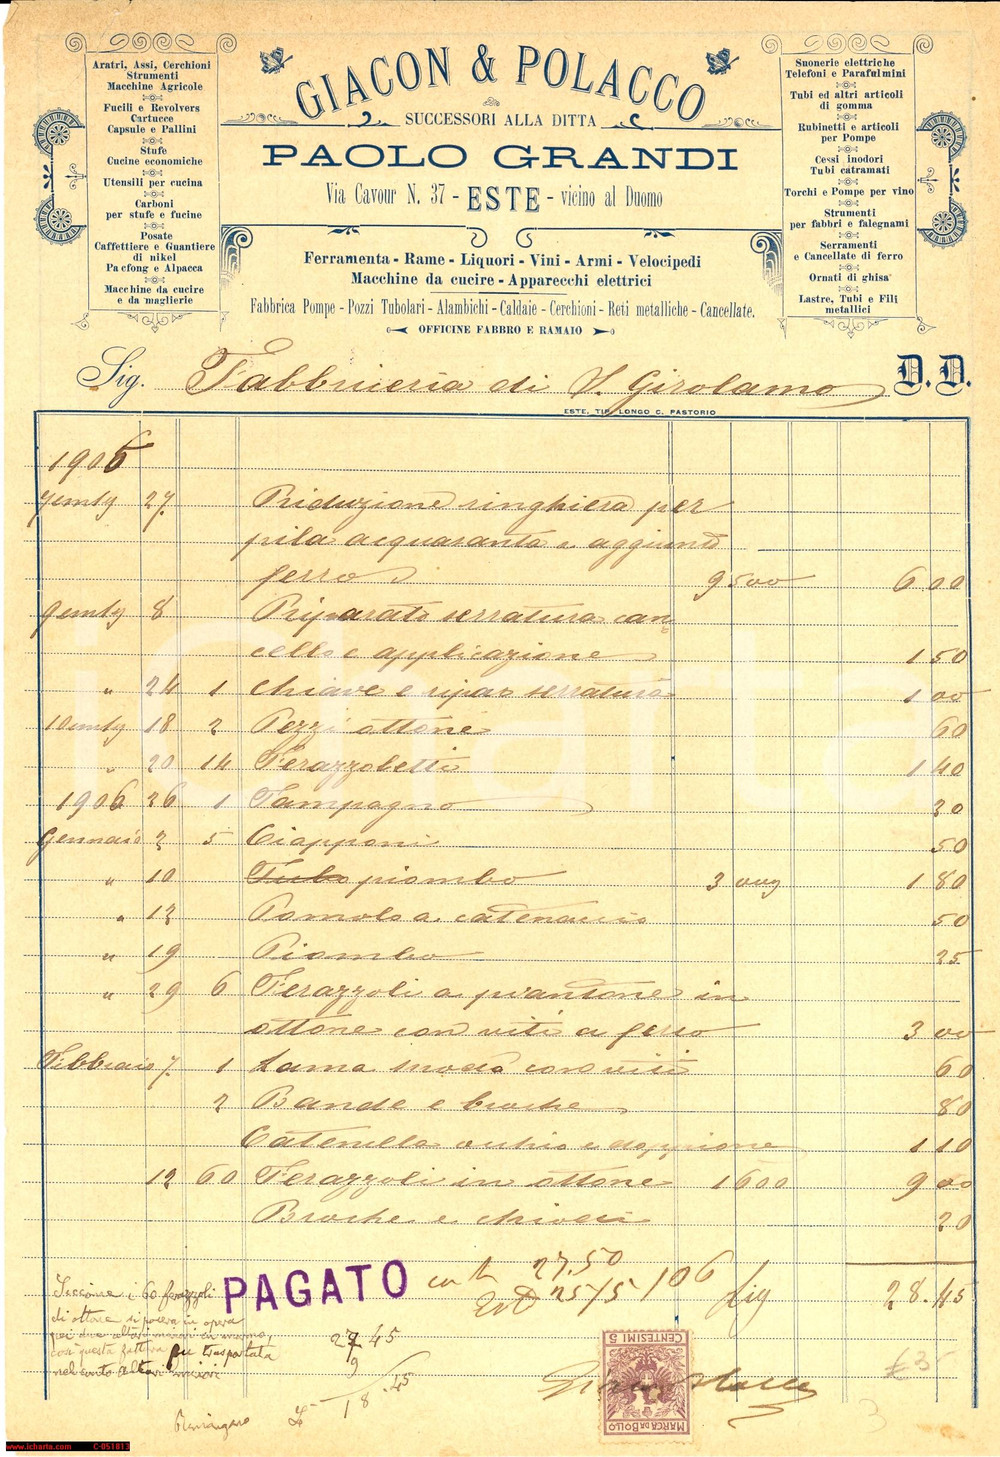 Aratri, Assi, Cerchioni
Strumenti
Macchine Agricole
Fucili e Revolvers
Cartucce
Capsule e Pallini
Stufe
Cucine economiche
Utensili per cucina
Carboni
per stufe e fucine
Posate
Caffettiere e Guantiere
di nikel
Pacfong e Alpacca
Macchine da cucire
e da maglierie
GIACON & POLACCO
SUCCESSORI ALLA DITTA
PAOLO GRANDI
Via Cavour N. 37 - ESTE - vicino al Duomo
Ferramenta - Rame - Liquori - Vini - Armi - Velocipedi
Macchine da cucire - Apparecchi elettrici
Fabbrica Pompe - Pozzi Tubolari - Alambichi - Caldaie - Cerchioni - Reti metalliche - Cancellate.
OFFICINE FABBRO E RAMAIO
Suonerie elettriche
Telefoni e Parafulmini
Tubi ed altri articoli
di gomma
Rubinetti e articoli
per Pompe
Cessi inodori
Tubi catramati
Torchi e Pompe per vino
Strumenti
per fabbri e falegnami
Serramenti
e Cancellate di ferro
Ornati di ghisa
Lastre, Tubi e Fili
metallici
Sig. Fabbriceria di S. Girolamo D. D.
ESTE, TIP. LONGO C. PASTORIO
190
27 Riduzione ringhiera per
pila acquasanta e aggiunto
ferro 9500 6 00
8 Riparato serratura can
cello e applicazione 1 50
" 24 1 chiave e ripar serratura 1 00
18 2 Pezzi ottone 60
" 20 14 Ferazzoletti 1 40
1906 26 1 Tampagno 20
Gennaio 2 5 Ciapponi 50
" 10 piombo 3 1 80
" 13 Pomolo a catenaccio 50
" 19 Piombo 25
" 29 6 Ferazzoli a piantone in
ottone con viti a ferro 3 00
Febbraio 7 1 Lama con viti 60
2 Bande e broche 80
Catenella occhio e doppione 1 10
12 60 Ferazzoli in ottone 1600 9 00
Broche e chiodi 20
PAGATO
27.50
25/5 106
28.45
Siccome i 60 ferazzoli
di ottone si posero in opera
così questa fattura fu trasportata
27 45
9
18.45
CENTESIMI 5
MARCA DA BOLLO
£ 35
3
www.icharta.com C-051013